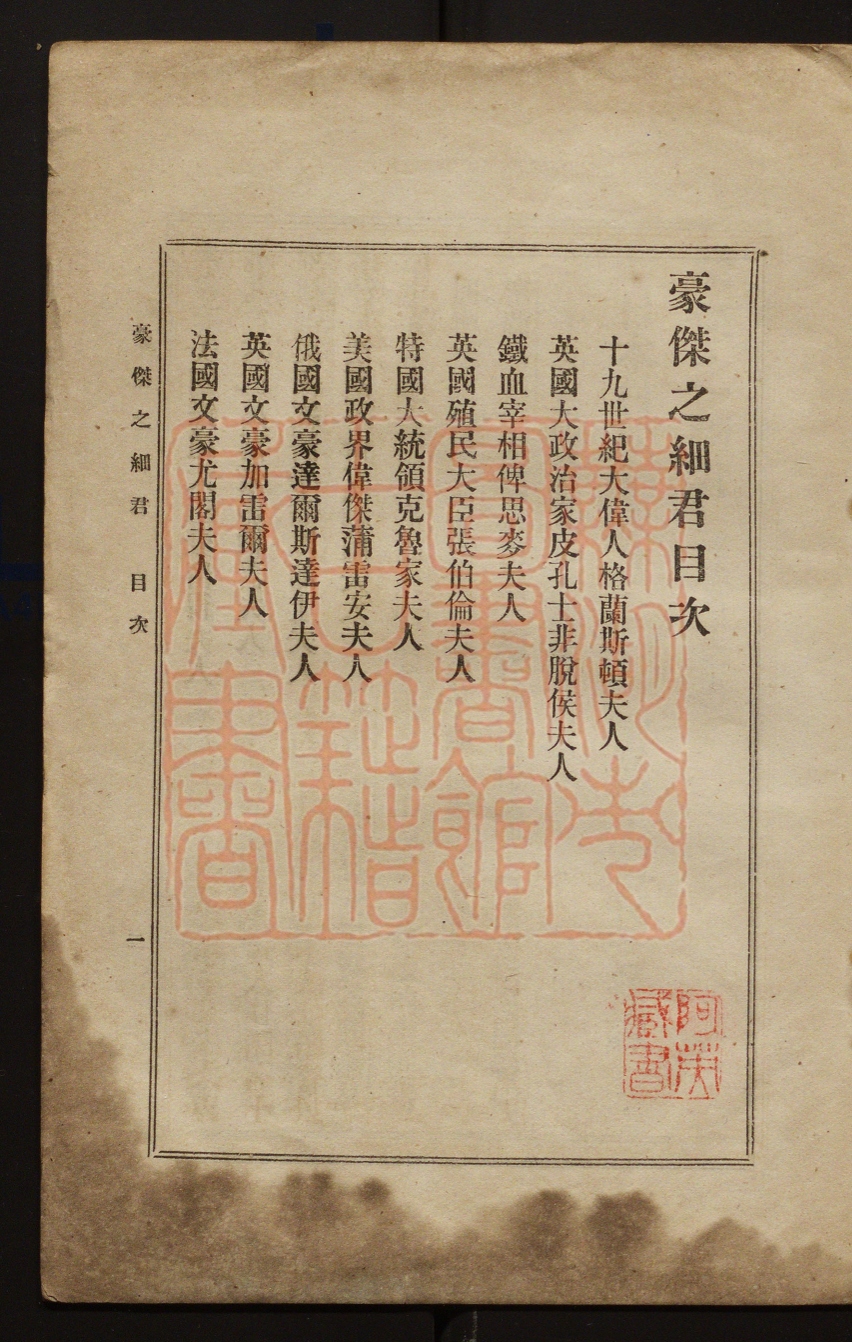 豪傑之細君目次
十九世紀大偉人格蘭斯頓夫人
英國大政治家皮孔士非脫侯夫人
鐵血宰相俾思麥夫人
英國殖民大臣張伯倫夫人
特國大統領克魯家夫人
美國政界偉傑蒲雷安夫人
俄國文豪達爾斯達伊夫人
英國文豪加雷爾夫人
法國文豪尤閣夫人
豪傑之細君 目次
一
阿英
藏書